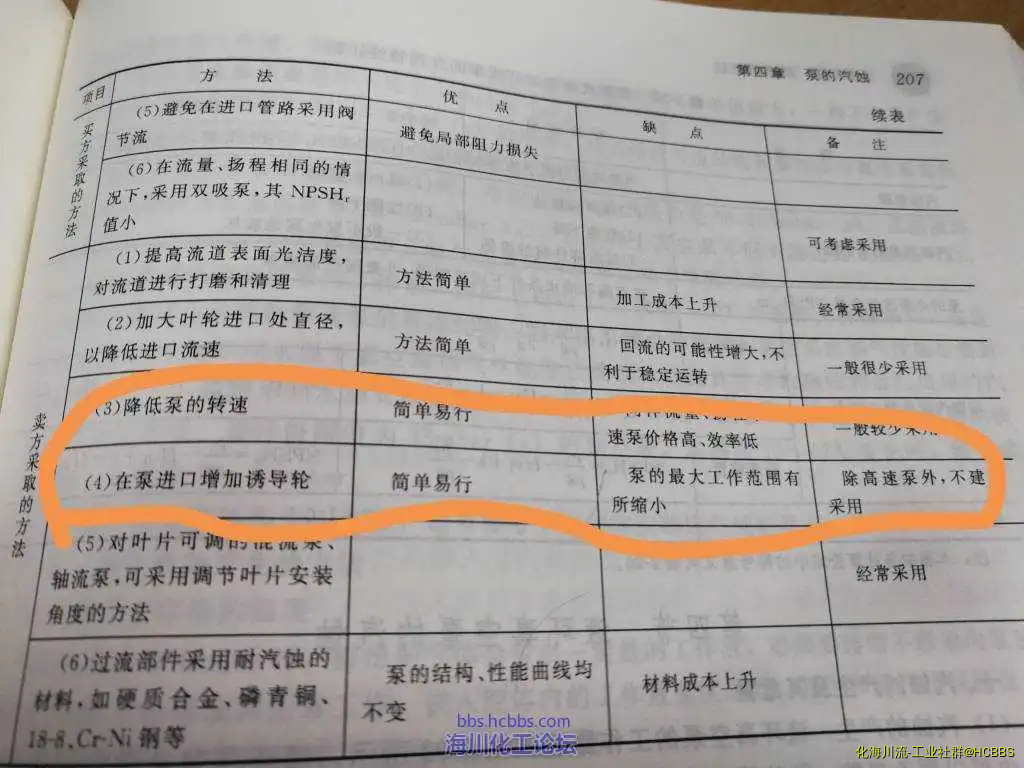 第四章 泵的汽蚀 207
续表
项目 方法 优点 缺点 备注
买方采取的方法
(5)避免在进口管路采用阀
节流
避免局部阻力损失
(6)在流量、扬程相同的情
况下,采用双吸泵,其 NPSHr
值小
可考虑采用
卖方采取的方法
(1)提高流道表面光洁度,
对流道进行打磨和清理
方法简单
加工成本上升
经常采用
(2)加大叶轮进口处直径,
以降低进口流速
方法简单
回流的可能性增大,不
利于稳定运转
一般很少采用
(3)降低泵的转速
简单易行
速泵价格高、效率低
一般较少采用
(4)在泵进口增加诱导轮
简单易行
泵的最大工作范围有
所缩小
除高速泵外,不建
采用
(5)对叶片可调的混流泵、
轴流泵,可采用调节叶片安装
角度的方法
经常采用
(6)过流部件采用耐汽蚀的
材料,如硬质合金、磷青铜、
18-8、Cr-Ni 钢等
泵的结构、性能曲线均
不变
材料成本上升
bbs.hcbbs.com
海川化工论坛
化海川流-工业社群@HCBBS